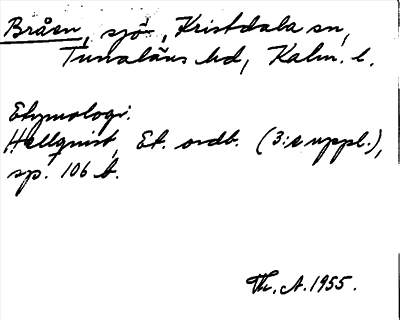 Bråen, sjö, Kristdala sn,
Tunaläns hd, Kalm. l.
Etymologi.
Hellquist, Et. ordb. (3:e uppl.),
sp. 106 b.
Th. A. 1955.